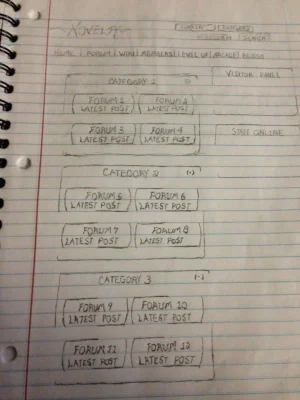 HOME | FORUM | WIKI | ABSALEAST | LEVEL UP | ARCADE | BLOGS
VISITOR PANEL
CATEGORY 1
FORUM 1 FORUM 2
LATEST POST LATEST POST
FORUM 3 FORUM 4
LATEST POST LATEST POST
STAFF ONLINE
CATEGORY 2 [-]
FORUM 5 FORUM 6
LATEST POST LATEST POST
FORUM 7 FORUM 8
LATEST POST LATEST POST
CATEGORY 3 [-]
FORUM 9 FORUM 10
LATEST POST LATEST POST
FORUM 11 FORUM 12
LATEST POST LATEST POST